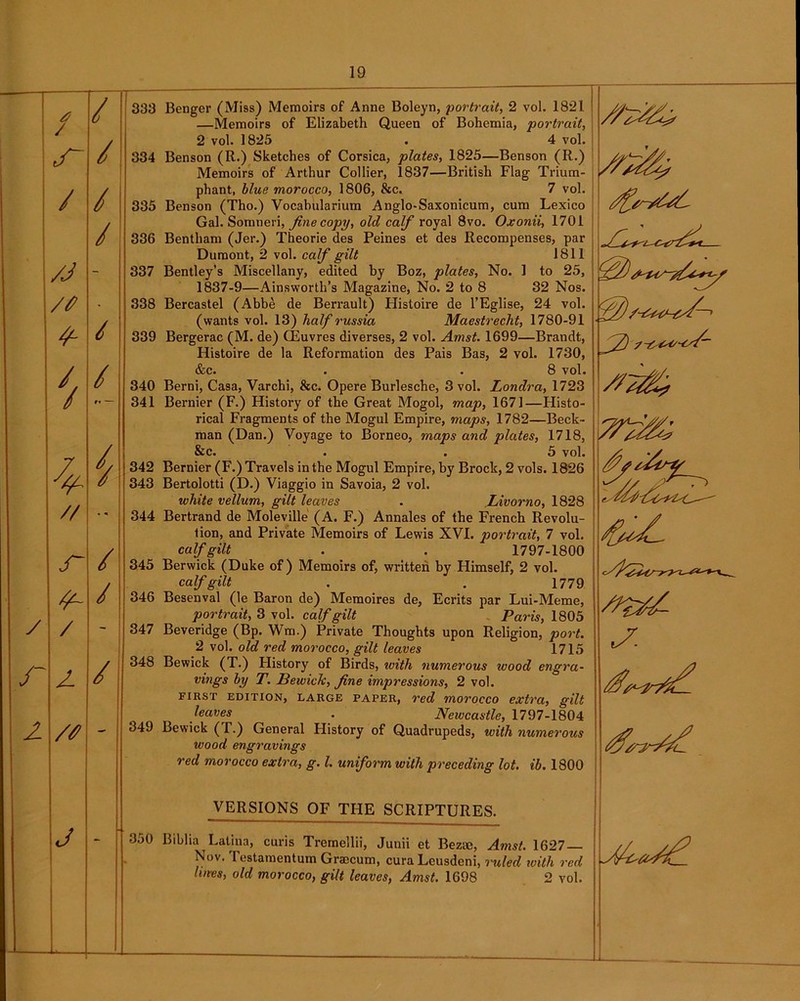 19
333 Benger (Miss) Memoirs of Anne Boleyn, portrait, 2 vol. 1821
—Memoirs of Elizabeth Queen of Bohemia, portrait,
2 vol. 1825 . 4 vol.
334 Benson (R.) Sketches of Corsica, plates, 1825—Benson (R.)
Memoirs of Arthur Collier, 1837—British Flag Trium-
phant, blue morocco, 1806, &c. 7 vol.
335 Benson (Tho.) Vocabularium Anglo-Saxonicum, cum Lexico
Gal. Somneri, fine copy, old calf royal 8vo. Oxonii, 1701
336 Bentham (Jer.) Theorie des Peines et des Recompenses, par
Dumont, 2 vol. calf gilt 1811
337 Bentley's Miscellany, edited by Boz, plates, No. 1 to 25,
1837-9—Ainsworth's Magazine, No. 2 to 8 32 Nos.
338 Bercastel (Abbè de Berrault) Histoire de l'Eglise, 24 vol.
(wants vol. 13) half russia Maestrecht, 1780-91
339 Bergerac (M. de) Œuvres diverses, 2 vol. Amst. 1699—Brandt,
Histoire de la Reformation des Pais Bas, 2 vol. 1730,
&c. . . 8 vol.
340 Berni, Casa, Varchi, &c. Opere Burlesche, 3 vol. Londra, 1723
341 Bernier (F.) History of the Great Mogol, map, 1671—Histo-
rical Fragments of the Mogul Empire, maps, 1782—Beck-
man (Dan.) Voyage to Borneo, maps and plates, 1718,
&c. . . 5 vol.
342 Bernier (F.) Travels in the Mogul Empire, by Brock, 2 vols. 1826
343 Bertolotti (D.) Viaggio in Savoia, 2 vol.
white vellum, gilt leaves . Livorno, 1828
344 Bertrand de Moleville (A. F.) Annales of the French Revolu-
tion, and Private Memoirs of Lewis XVI. portrait, 7 vol.
calf gilt . . 1797-1800
345 Berwick (Duke of) Memoirs of, written by Himself, 2 vol.
calf gilt . . 1779
346 Besenval (le Baron de) Memoires de, Ecrits par Lui-Meme,
portrait, 3 vol. calf gilt Paris, 1805
347 Beveridge (Bp. Wm.) Private Thoughts upon Religion, port.
2 vol. old red morocco, gilt leaves 1715
348 Bewick (T.) History of Birds, with numerous wood engra-
vings by T. Bewick, fine impressions, 2 vol.
FIRST EDITION, LARGE PAPER, red morocco extra, gilt
leaves . Newcastle, 1797-1804
349 Bewick (T.) General History of Quadrupeds, with numerous
wood engravings
red morocco extra, g. l. uniform with preceding lot. ib. 1800
VERSIONS OF THE SCRIPTURES.
350 Biblia Latina, curis Tremellii, Junii et Bezæ, Amst. 1627—
Nov. Testamentum Græcum, cura Leusdeni, ruled with red
lines, old morocco, gilt leaves, Amst. 1698 2 vol.